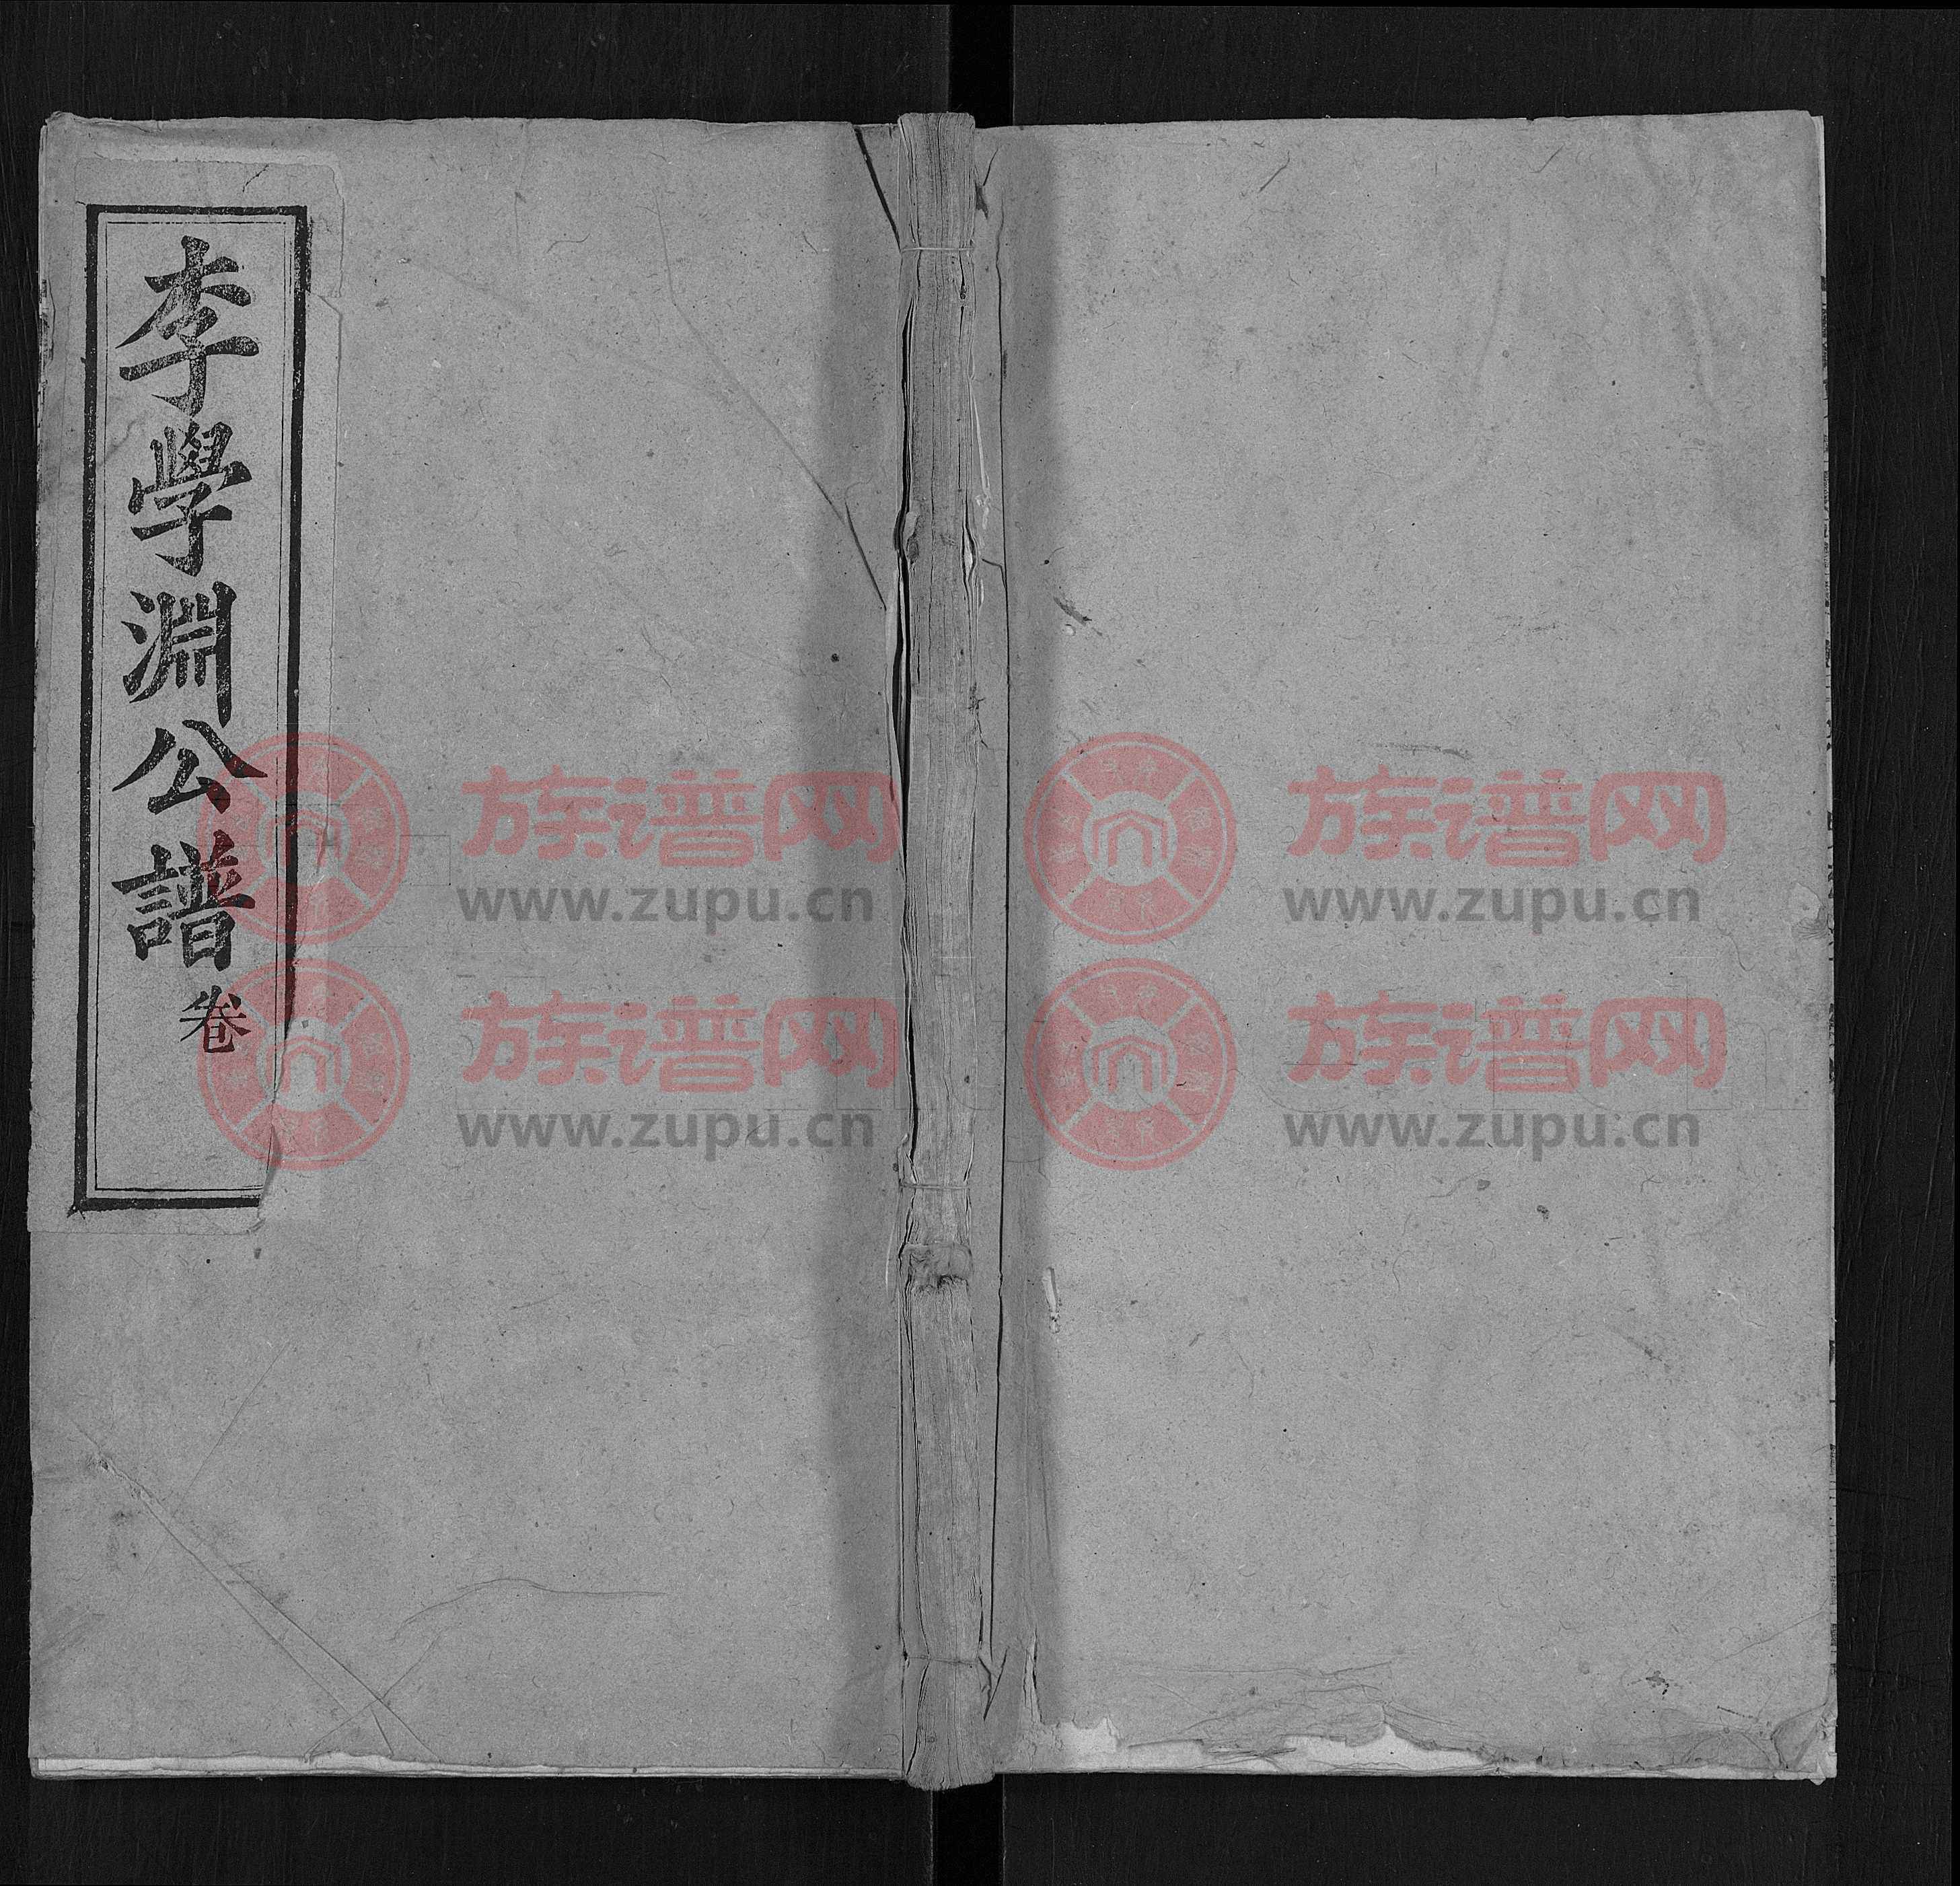 李學淵公譜卷
族谱网
www.zupu.cn
族谱网
www.zupu.cn
族谱网
www.zupu.cn
族谱网
www.zupu.cn